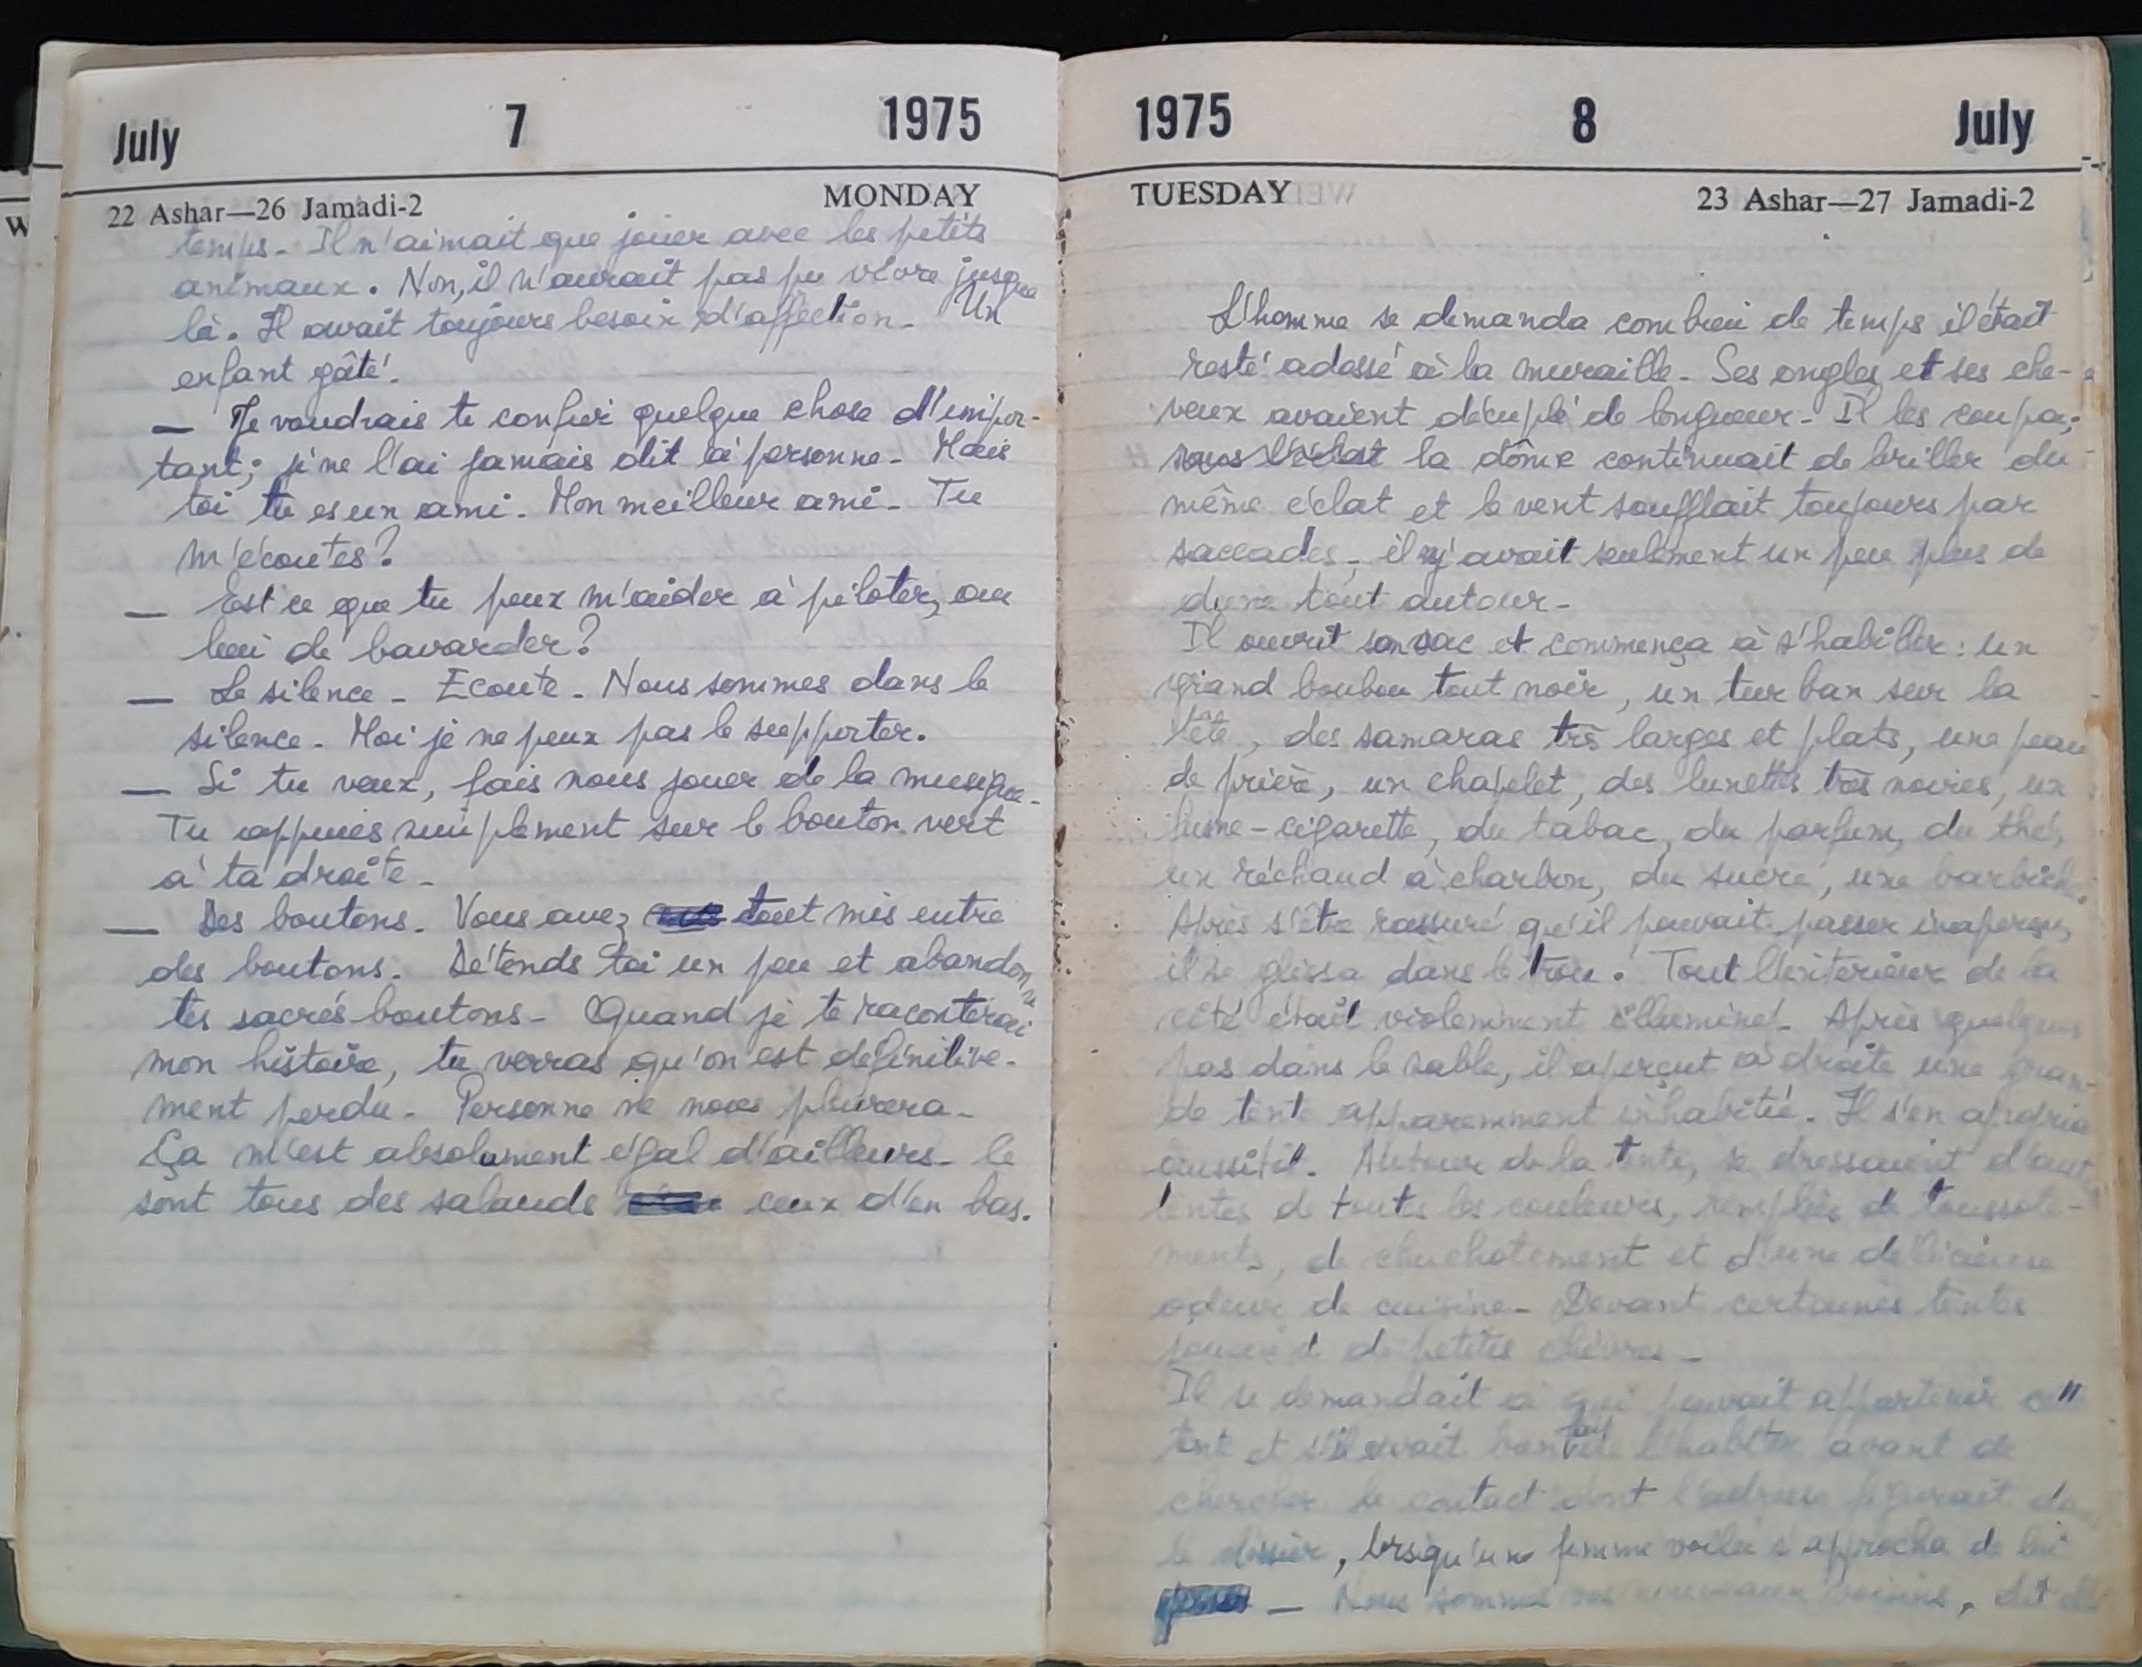 July 7 1975
22 Ashar—26 Jamadi-2 MONDAY
temps. Il n'aimait que jouer avec les petits
animaux. Non, il n'aurait pas pu vivre jusque
là. Il avait toujours besoin d'affection. Un
enfant gâté.
— Je voudrais te confier quelque chose d'impor-
tant; je ne l'ai jamais dit à personne. Mais
toi tu es un ami. Mon meilleur ami. Tu
m'écoutes?
— Est ce que tu peux m'aider à piloter, au
lieu de bavarder?
— Le silence. Ecoute. Nous sommes dans le
silence. Moi je ne peux pas le supporter.
— Si tu veux, fais nous jouer de la musique.
Tu appuies simplement sur le bouton vert
à ta droite.
— Des boutons. Vous avez tout mis entre
des boutons. Détends toi un peu et abandonne
tes sacrés boutons. Quand je te raconterai
mon histoire, tu verras qu'on est définitive-
ment perdu. Personne ne nous pleurera.
Ça m'est absolument égal d'ailleurs. Ce
sont tous des salauds ceux d'en bas.
1975 8 July
TUESDAY 23 Ashar—27 Jamadi-2
L'homme se demanda combien de temps il était
resté adossé à la muraille. Ses ongles et ses che-
veux avaient décuplé de longueur. Il les coupa;
sous l'éclat la dôme continuait de briller du
même éclat et le vent soufflait toujours par
saccades, il y avait seulement un peu plus de
dune tout autour.
Il ouvrit son sac et commença à s'habiller: un
grand boubou tout noir, un turban sur la
tête, des samaras très larges et plats, une peau
de prière, un chapelet, des lunettes très noires, un
fume-cigarette, du tabac, du parfum, du thé,
un réchaud à charbon, du sucre, une barbiche.
Après s'être rassuré qu'il pouvait passer inaperçu,
il se glissa dans le trou. Tout l'exterieur de la
cité était violemment illuminé. Après quelques
pas dans le sable, il aperçut à droite une gran-
de tente apparemment inhabitée. Il s'en apropria
aussitôt. Autour de la tente, se dressaient d'autres
tentes de toutes les couleurs, remplies de toussote-
ments, de chuchotement et d'une délicieuse
odeur de cuisine. Devant certaines tentes
jouaient de petites chèvres.
Il se demandait à qui pouvait appartenir cette
tente et s'il avait l'habiter avant de
chercher le contact dont l'adresse figurait
le dossier, lorsqu'une femme voilée s'approcha de lui
— Nous sommes vos nouveaux voisins, dit elle